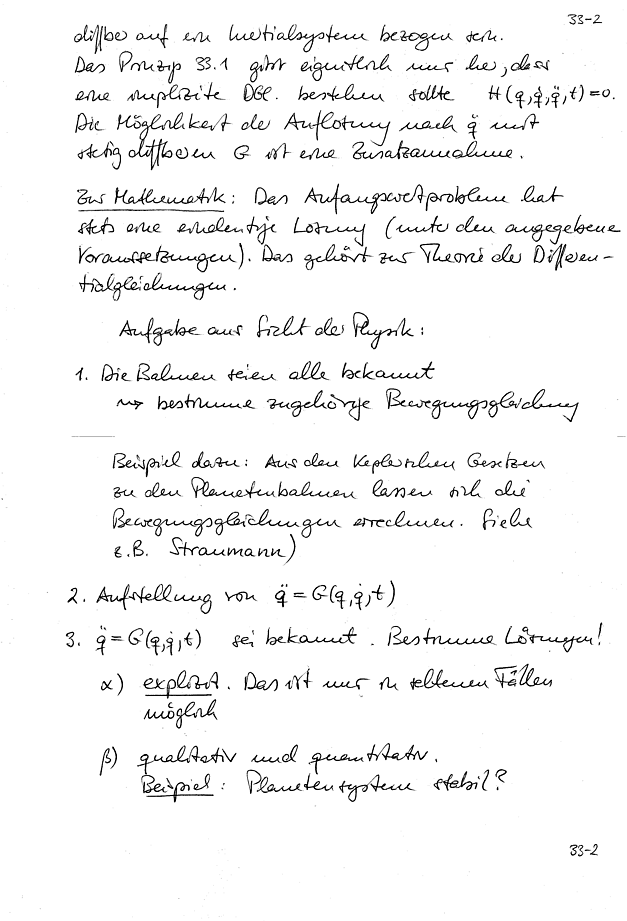 33-2
diffbar auf ein Inertialsystem bezogen sein.
Das Prinzip 33.1 gibt eigentlich nur her, dass
eine implizite DGl. bestehen sollte H(q,q̇,q̈,t)=0.
Die Möglichkeit der Auflösung nach q̈ mit
stetig diffbarem G ist eine Zusatzannahme.
Zur Mathematik: Das Anfangswertproblem hat
stets eine eindeutige Lösung (unter den angegebenen
Voraussetzungen). Das gehört zur Theorie der Differen-
tialgleichungen.
Aufgabe aus Sicht der Physik:
1. Die Bahnen seien alle bekannt
⇝ bestimme zugehörige Bewegungsgleichung
Beispiel dazu: Aus den Keplerschen Gesetzen
zu den Planetenbahnen lassen sich die
Bewegungsgleichungen errechnen. Siehe
z.B. Straumann)
2. Aufstellung von q̈ = G(q,q̇,t)
3. q̈ = G(q,q̇,t) sei bekannt. Bestimme Lösungen!
α) explizit. Das ist nur in seltenen Fällen
möglich
β) qualitativ und quantitativ.
Beispiel: Planetensystem stabil?
33-2